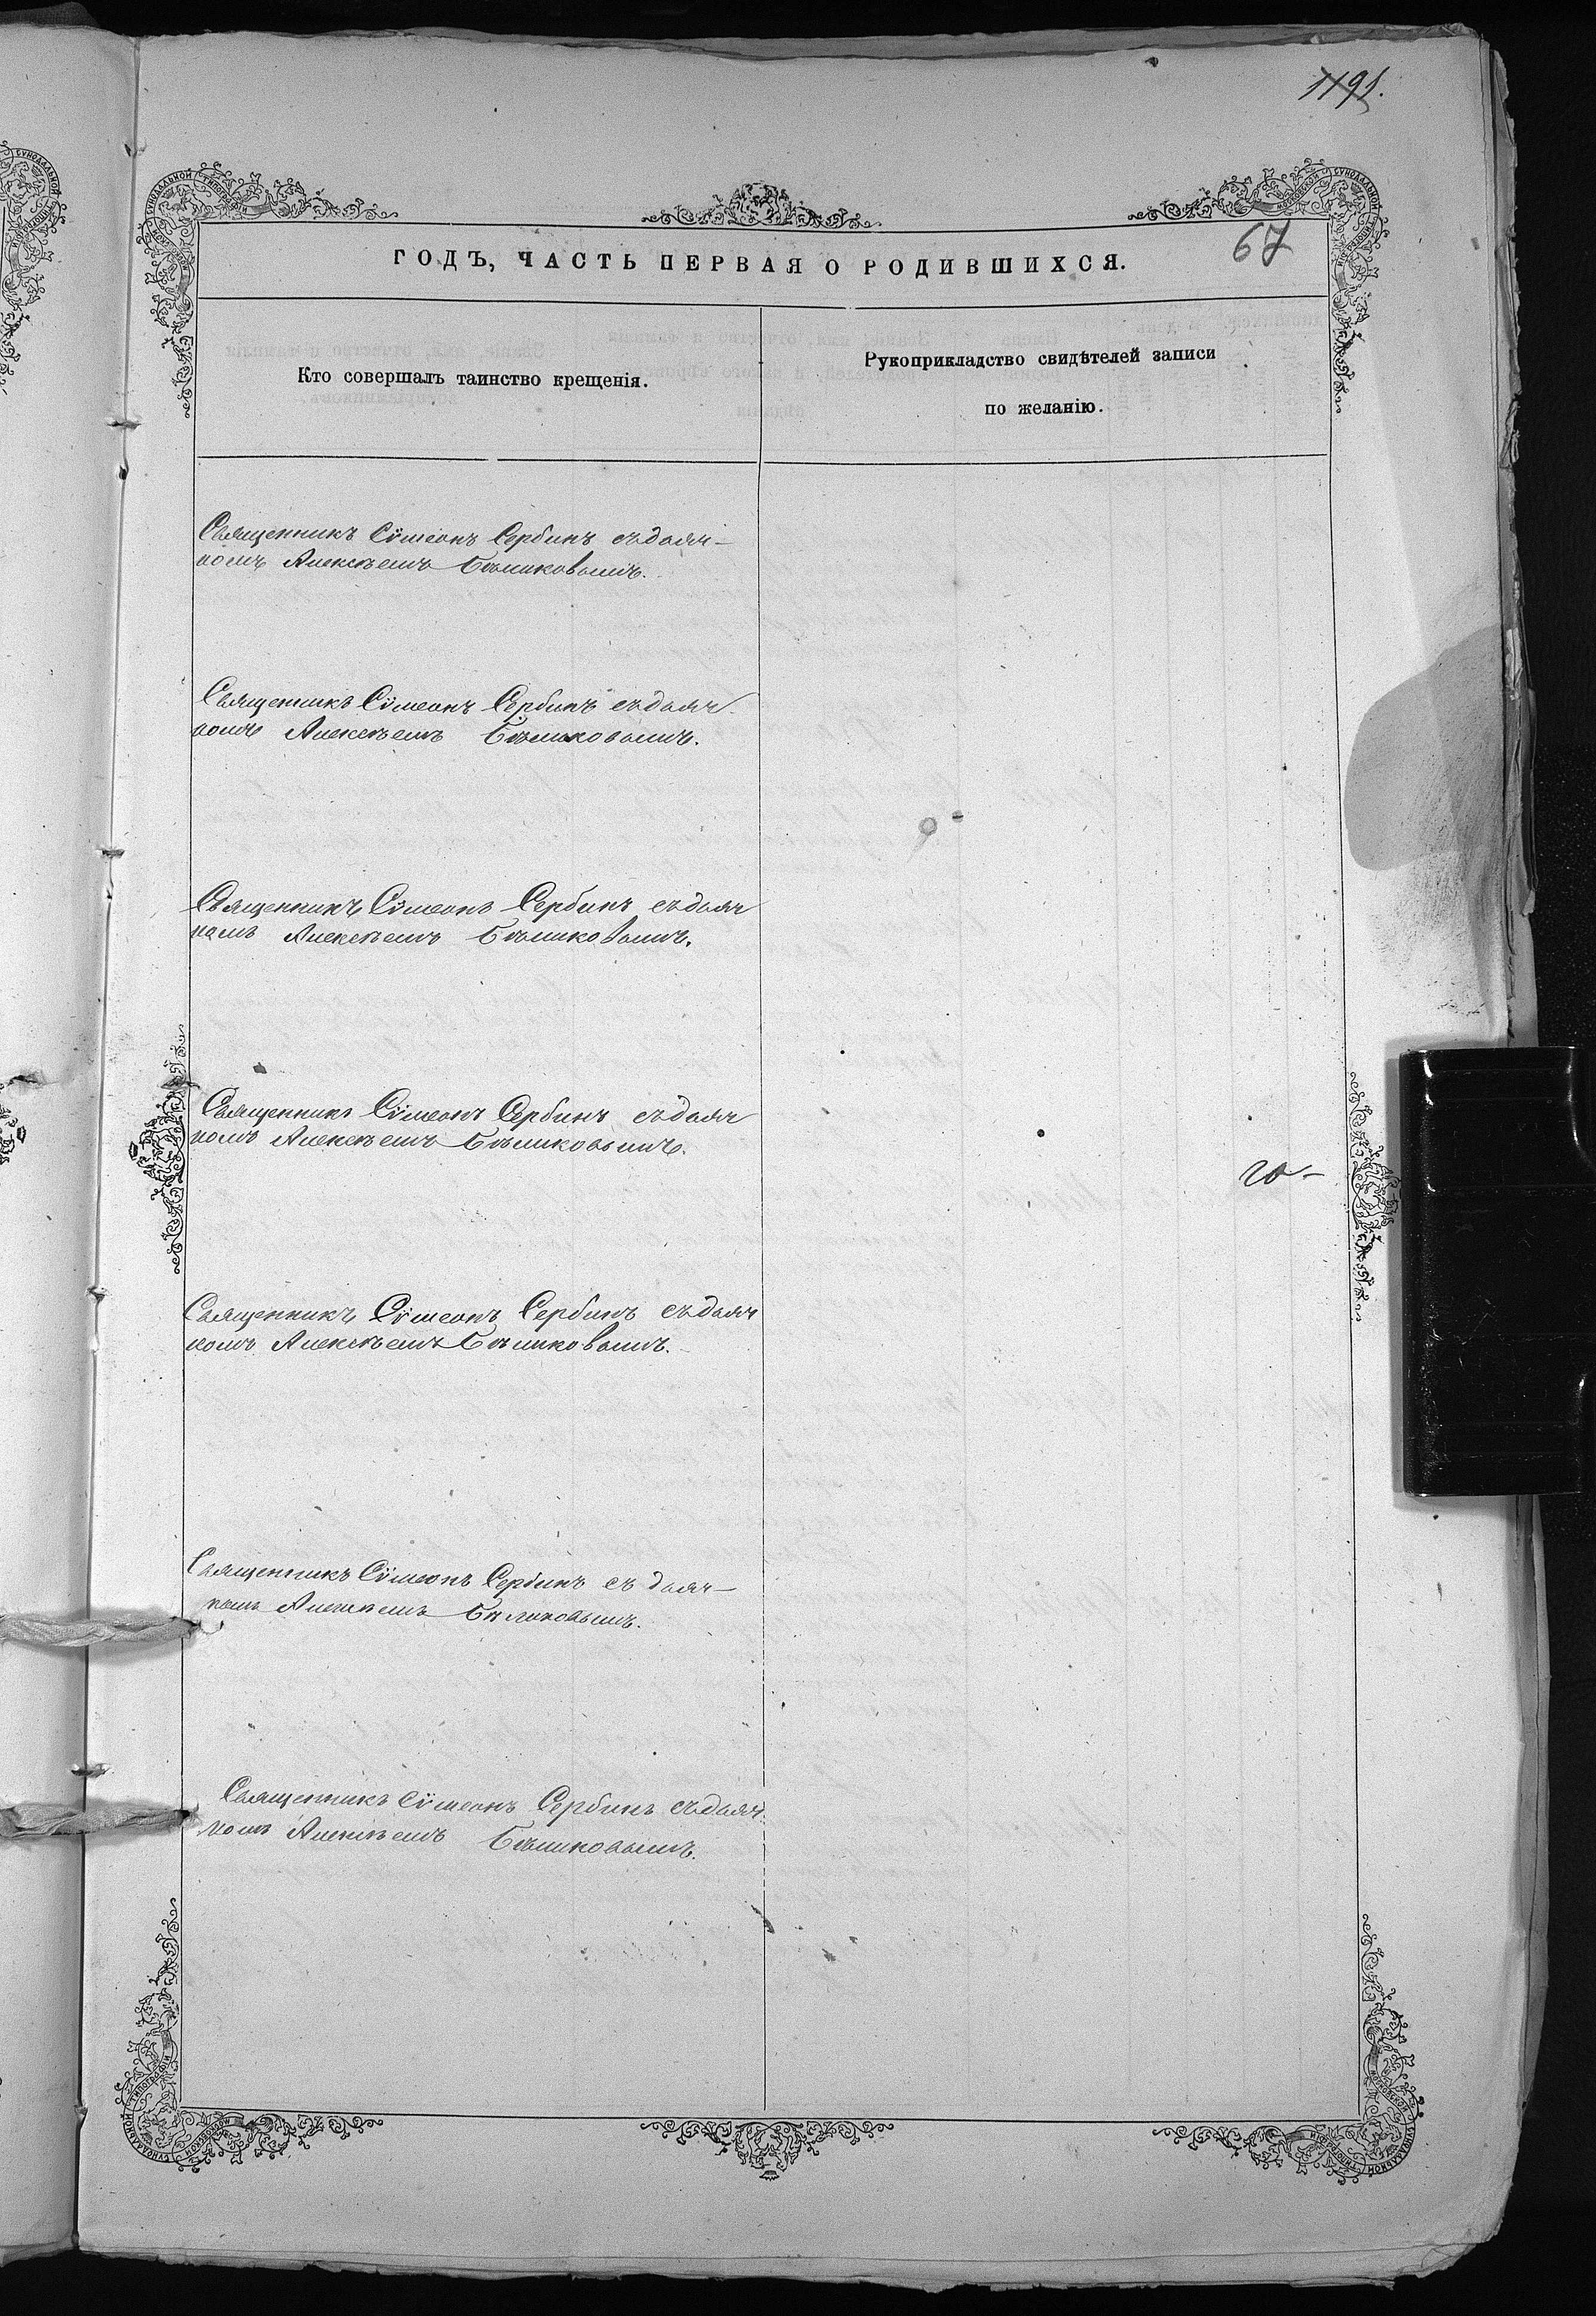 1191.
67
ГОДЪ, ЧАСТЬ ПЕРВАЯ О РОДИВШИХСЯ.
Кто совершалъ таинство крещенія.
Рукоприкладство свидѣтелей записи
по желанію.
Священникъ Сѵмеонъ Сербинъ съ дьяч-
комъ Алексѣемъ Бѣликовымъ.
Священникъ Сѵмеонъ Сербинъ съ дьяч
комъ Алексѣемъ Бѣликовымъ.
Священникъ Сѵмеонъ Сербинъ съ дьяч
комъ Алексѣемъ Бѣликовымъ.
Священникъ Сѵмеонъ Сербинъ съ дьяч
комъ Алексѣемъ Бѣликовымъ.
Священникъ Сѵмеонъ Сербинъ съ дьяч
комъ Алексѣемъ Бѣликовымъ.
Священникъ Сѵмеонъ Сербинъ съ дьяч-
комъ Алексѣемъ Бѣликовымъ.
Священникъ Сѵмеонъ Сербинъ съ дьяч
комъ Алексѣемъ Бѣликовымъ.